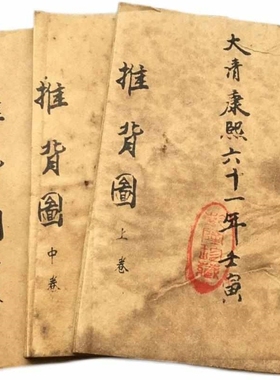 大清康熙六十一年壬寅
推背圖
上卷
推背圖
中卷